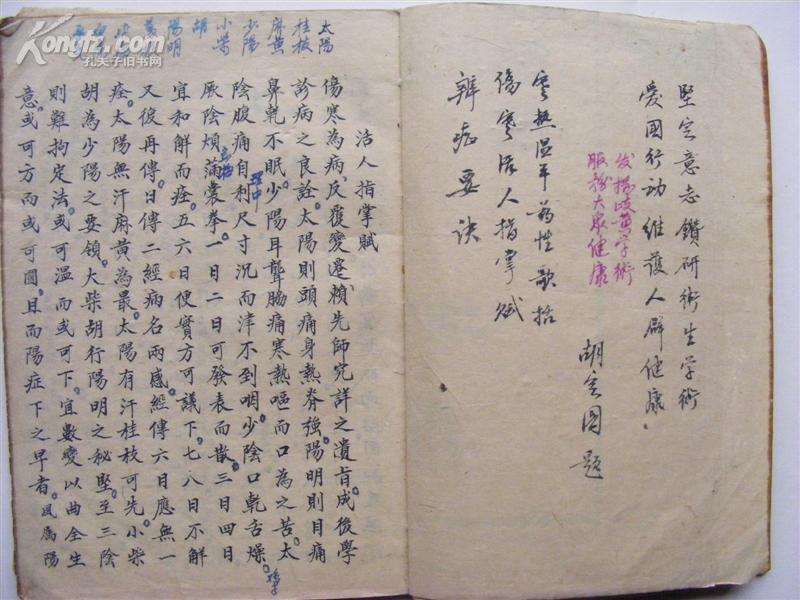 堅定意志鑽研衛生學術
愛國行動維護人群健康
发揚岐黄学術
服務大衆健康
寒熱温平葯性歌括
傷寒活人指掌賦
辨症要訣
胡金國題
太陽
桂枝
麻黄
少陽
小柴
胡
陽明
活人指掌賦
傷寒為病反覆變遷賴先師究詳之遺旨成後學
診病之良詮太陽則頭痛身熱脊強陽明則目痛
鼻乾不眠少陽耳聾胁痛寒熱嘔而口為之苦太
陰腹痛自利尺寸沉而津不到咽少陰口乾舌燥
理中
厥陰煩滿囊拳一日二日可發表而散三日四日
宜和解而痊五六日便實方可議下七八日不解
又復再傳日傳二經病名兩感經傳六日應無一
痊太陽無汗麻黄為最太陽有汗桂枝可先小柴
胡為少陽之要領大柴胡行陽明之秘堅至三陰
則難拘定法或可温而或可下宜數變以曲全生
意或可方而或可圓且而陽症下之早者风為陽
孔夫子旧书网
KONGFZ.COM